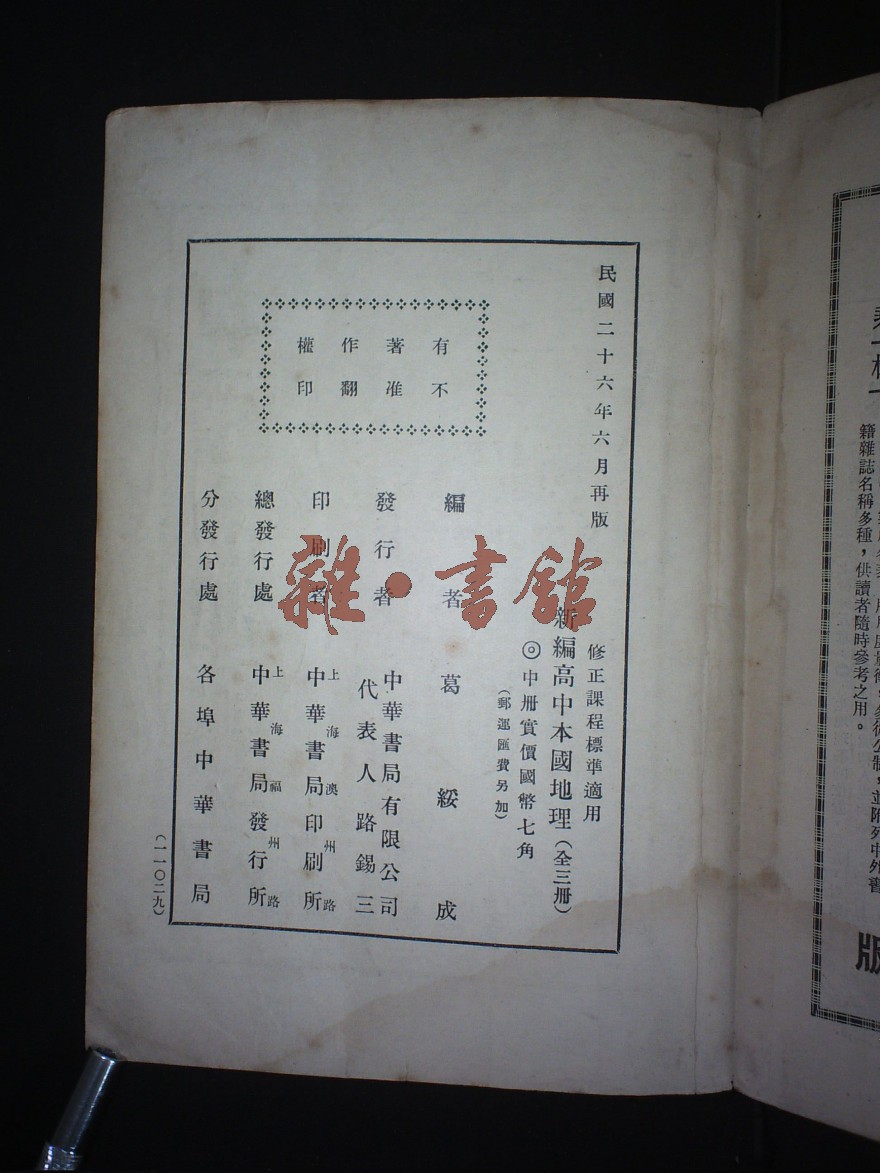 民國二十六年六月再版
修正課程標準適用
新編高中本國地理(全三册)
◎中册實價國幣七角
(郵運匯費另加)
有不
著准
作翻
權印
編者 葛綏成
發行者 中華書局有限公司
代表人路錫三
印刷者 上海澳州路
中華書局印刷所
總發行處 上海福州路
中華書局發行所
分發行處 各埠中華書局
(一一〇二九)
雜·書館
籍雜誌名稱多種,供讀者隨時參考之用。
版